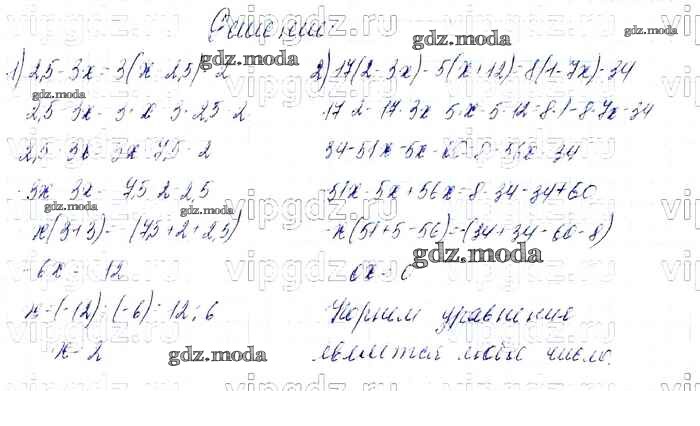 Решение
1) 2,5 - 3x = 3(x - 2,5) - 2
2,5 - 3x = 3 · x - 3 · 2,5 - 2
2,5 - 3x = 3x - 7,5 - 2
-3x - 3x = -7,5 - 2 - 2,5
-x(3+3) = -(7,5+2+2,5)
-6x = -12
x = (-12) : (-6) = 12 : 6
x = 2
2) 17(2 - 3x) - 5(x + 12) = 8(1 - 7x) - 34
17 · 2 - 17 · 3x - 5 · x - 5 · 12 = 8 · 1 - 8 · 7x - 34
34 - 51x - 5x - 60 = 8 - 56x - 34
-51x - 5x + 56x = 8 - 34 - 34 + 60
-x(51 + 5 - 56) = -(34 + 34 - 60 - 8)
0x = 0
Корнем уравнения
является любое число.
gdz.moda
gdz.moda
gdz.moda
gdz.moda
gdz.moda
gdz.moda
gdz.moda
gdz.moda
vipgdz.ru
vipgdz.ru
vipgdz.ru
vipgdz.ru